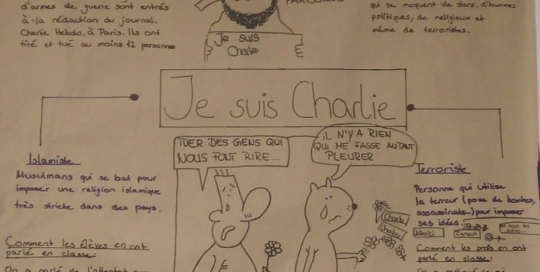 d'armes de guerre sont entrés
à la rédaction du journal
Charlie Hebdo, à Paris. Ils ont
tiré et tué au moins 12 personnes
Je suis
Charlie
qui se moquent de stars, d'hommes
politiques, de religieux et
même de terroristes.
Je suis Charlie
TUER DES GENS QUI
NOUS FONT RIRE...
IL N'Y A RIEN
QUI ME FASSE AUTANT
PLEURER
Islamiste
Musulmans qui se bat pour
imposer une religion islamique
très stricte dans des pays.
Comment les élèves en ont
parlé en classe:
On a parlé de l'attentat
Terroriste
Personne qui utilise
la terreur (pose de bombes,
assassinats...) pour imposer
ses idées.
Charb
Charlie
Wolinski
Comment les profs en ont
parlé en classe: